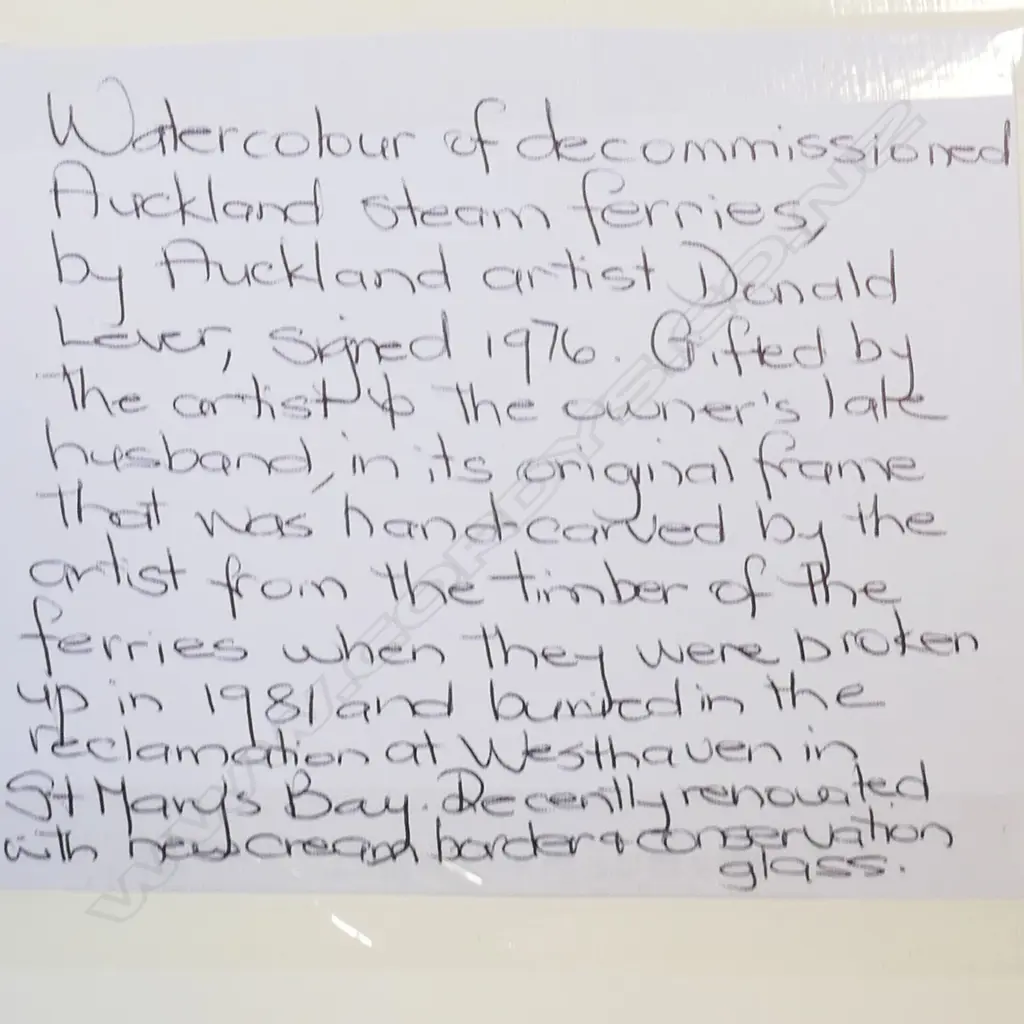 Watercolour of decommissioned
Auckland steam ferries,
by Auckland artist Donald
Lever, signed 1976. Gifted by
the artist to the owner's late
husband, in its original frame
that was hand-carved by the
artist from the timber of the
ferries when they were broken
up in 1981 and buried in the
reclamation at Westhaven in
St Mary's Bay. Recently renovated
with new cream border & conservation
glass.
WWW.CORDYS.CO.NZ